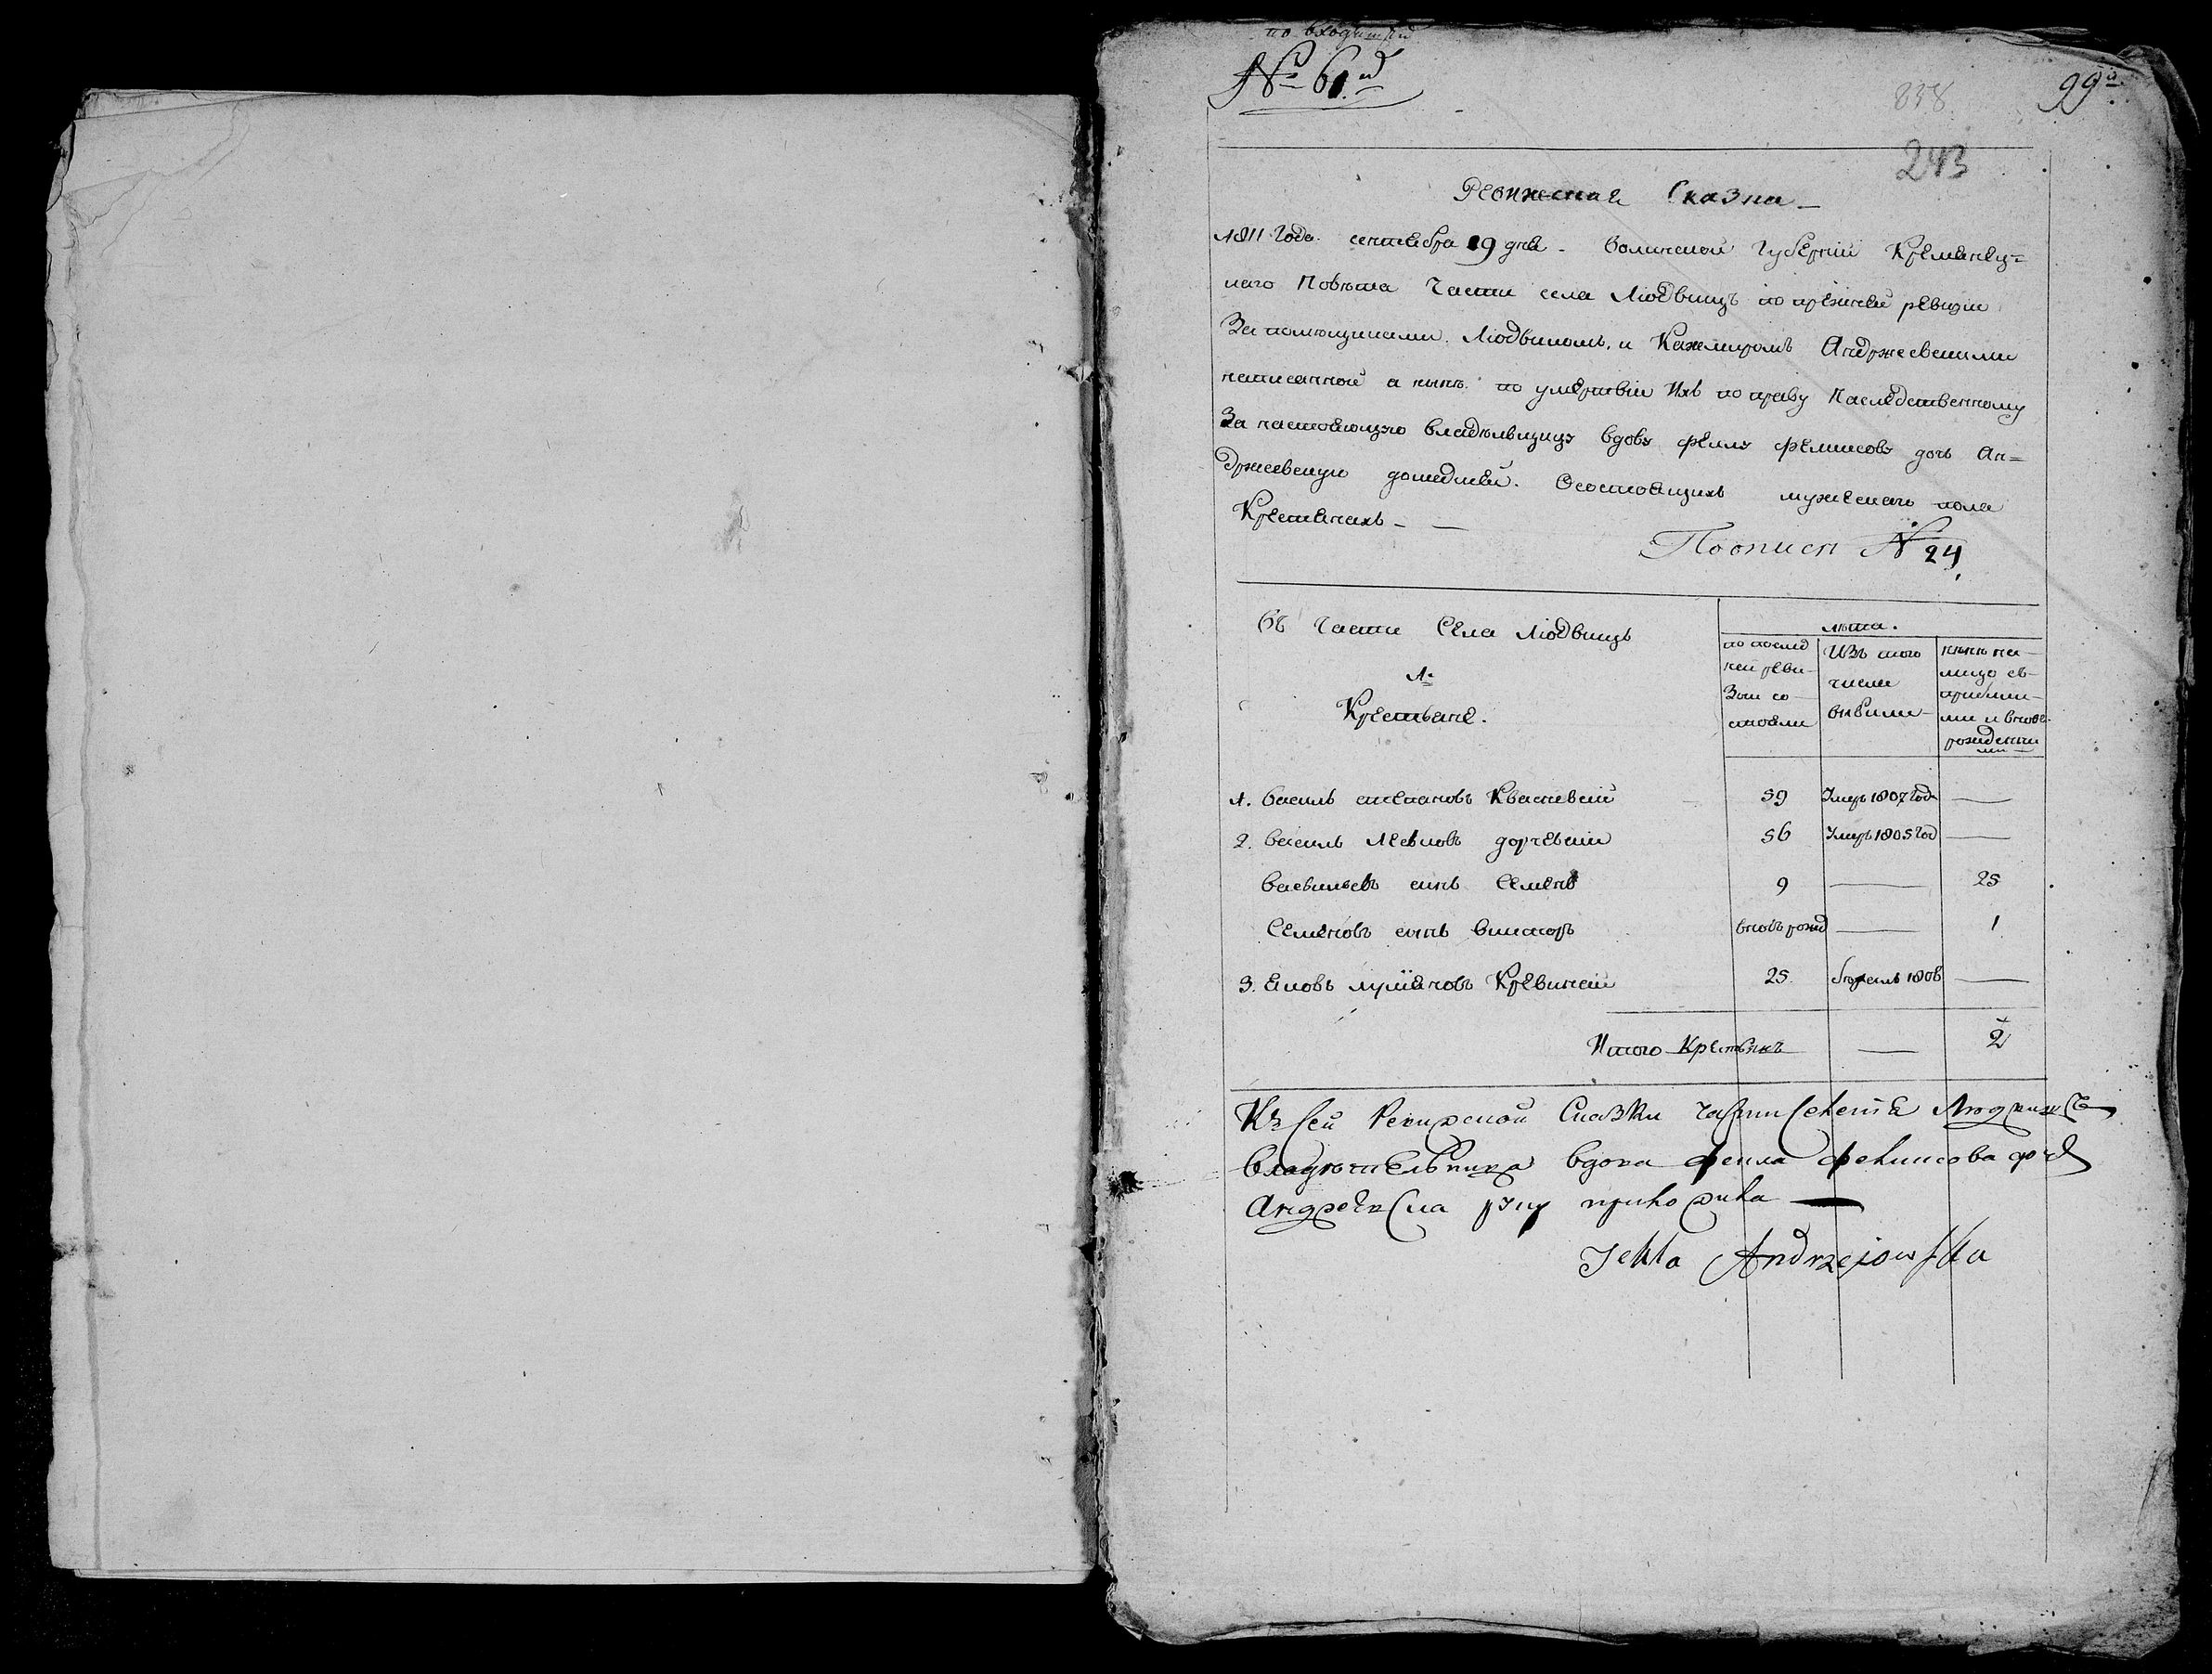 по входящей
№ 61й
99й
838
243
Ревижская Сказка
1811 Года сентебра 19 дня Волинской Губернїи Кременец=
каго Повѣта Части села Людвищъ по прежней ревизіи
За помющиками Людвикомъ, и Каземиромъ Анджеевскими
написанной а нынѣ по умертвїи Ихъ по праву Наследственному
За настоющую владѣльщицу вдову феклу феликсову дочъ Ан=
джеевскую дошедшей. Осостоящихъ мужескаго пола
Крестянахъ
Поописи № 24
Въ Части Села Людвищъ
лѣта.
по послед
ней реви-
Зои со-
стояли
ИЗъ того
числа
выбыли
нынѣ на-
лицо съ-
прибили-
ми и вновь-
рожденни
ми
1.
Крестьяне.
1. Василь степановъ Квасневсий 59 Умеръ 1807 Года
2. Василь Левковъ дорчевски 56 Умеръ 1805 Год
Васильевъ синъ Семенъ 9 25
Семеновъ синъ викторъ вновъ рожд 1
3. Яковъ лукїяновъ Кревиский 25 1808
Итого Крестьянъ 2
Къ сей Ревижской Сказки части селения Людвищъ
владѣтельница вдова фекла феликсова дочь
Анджеевска руку приложила
Tekla Andrzejowska